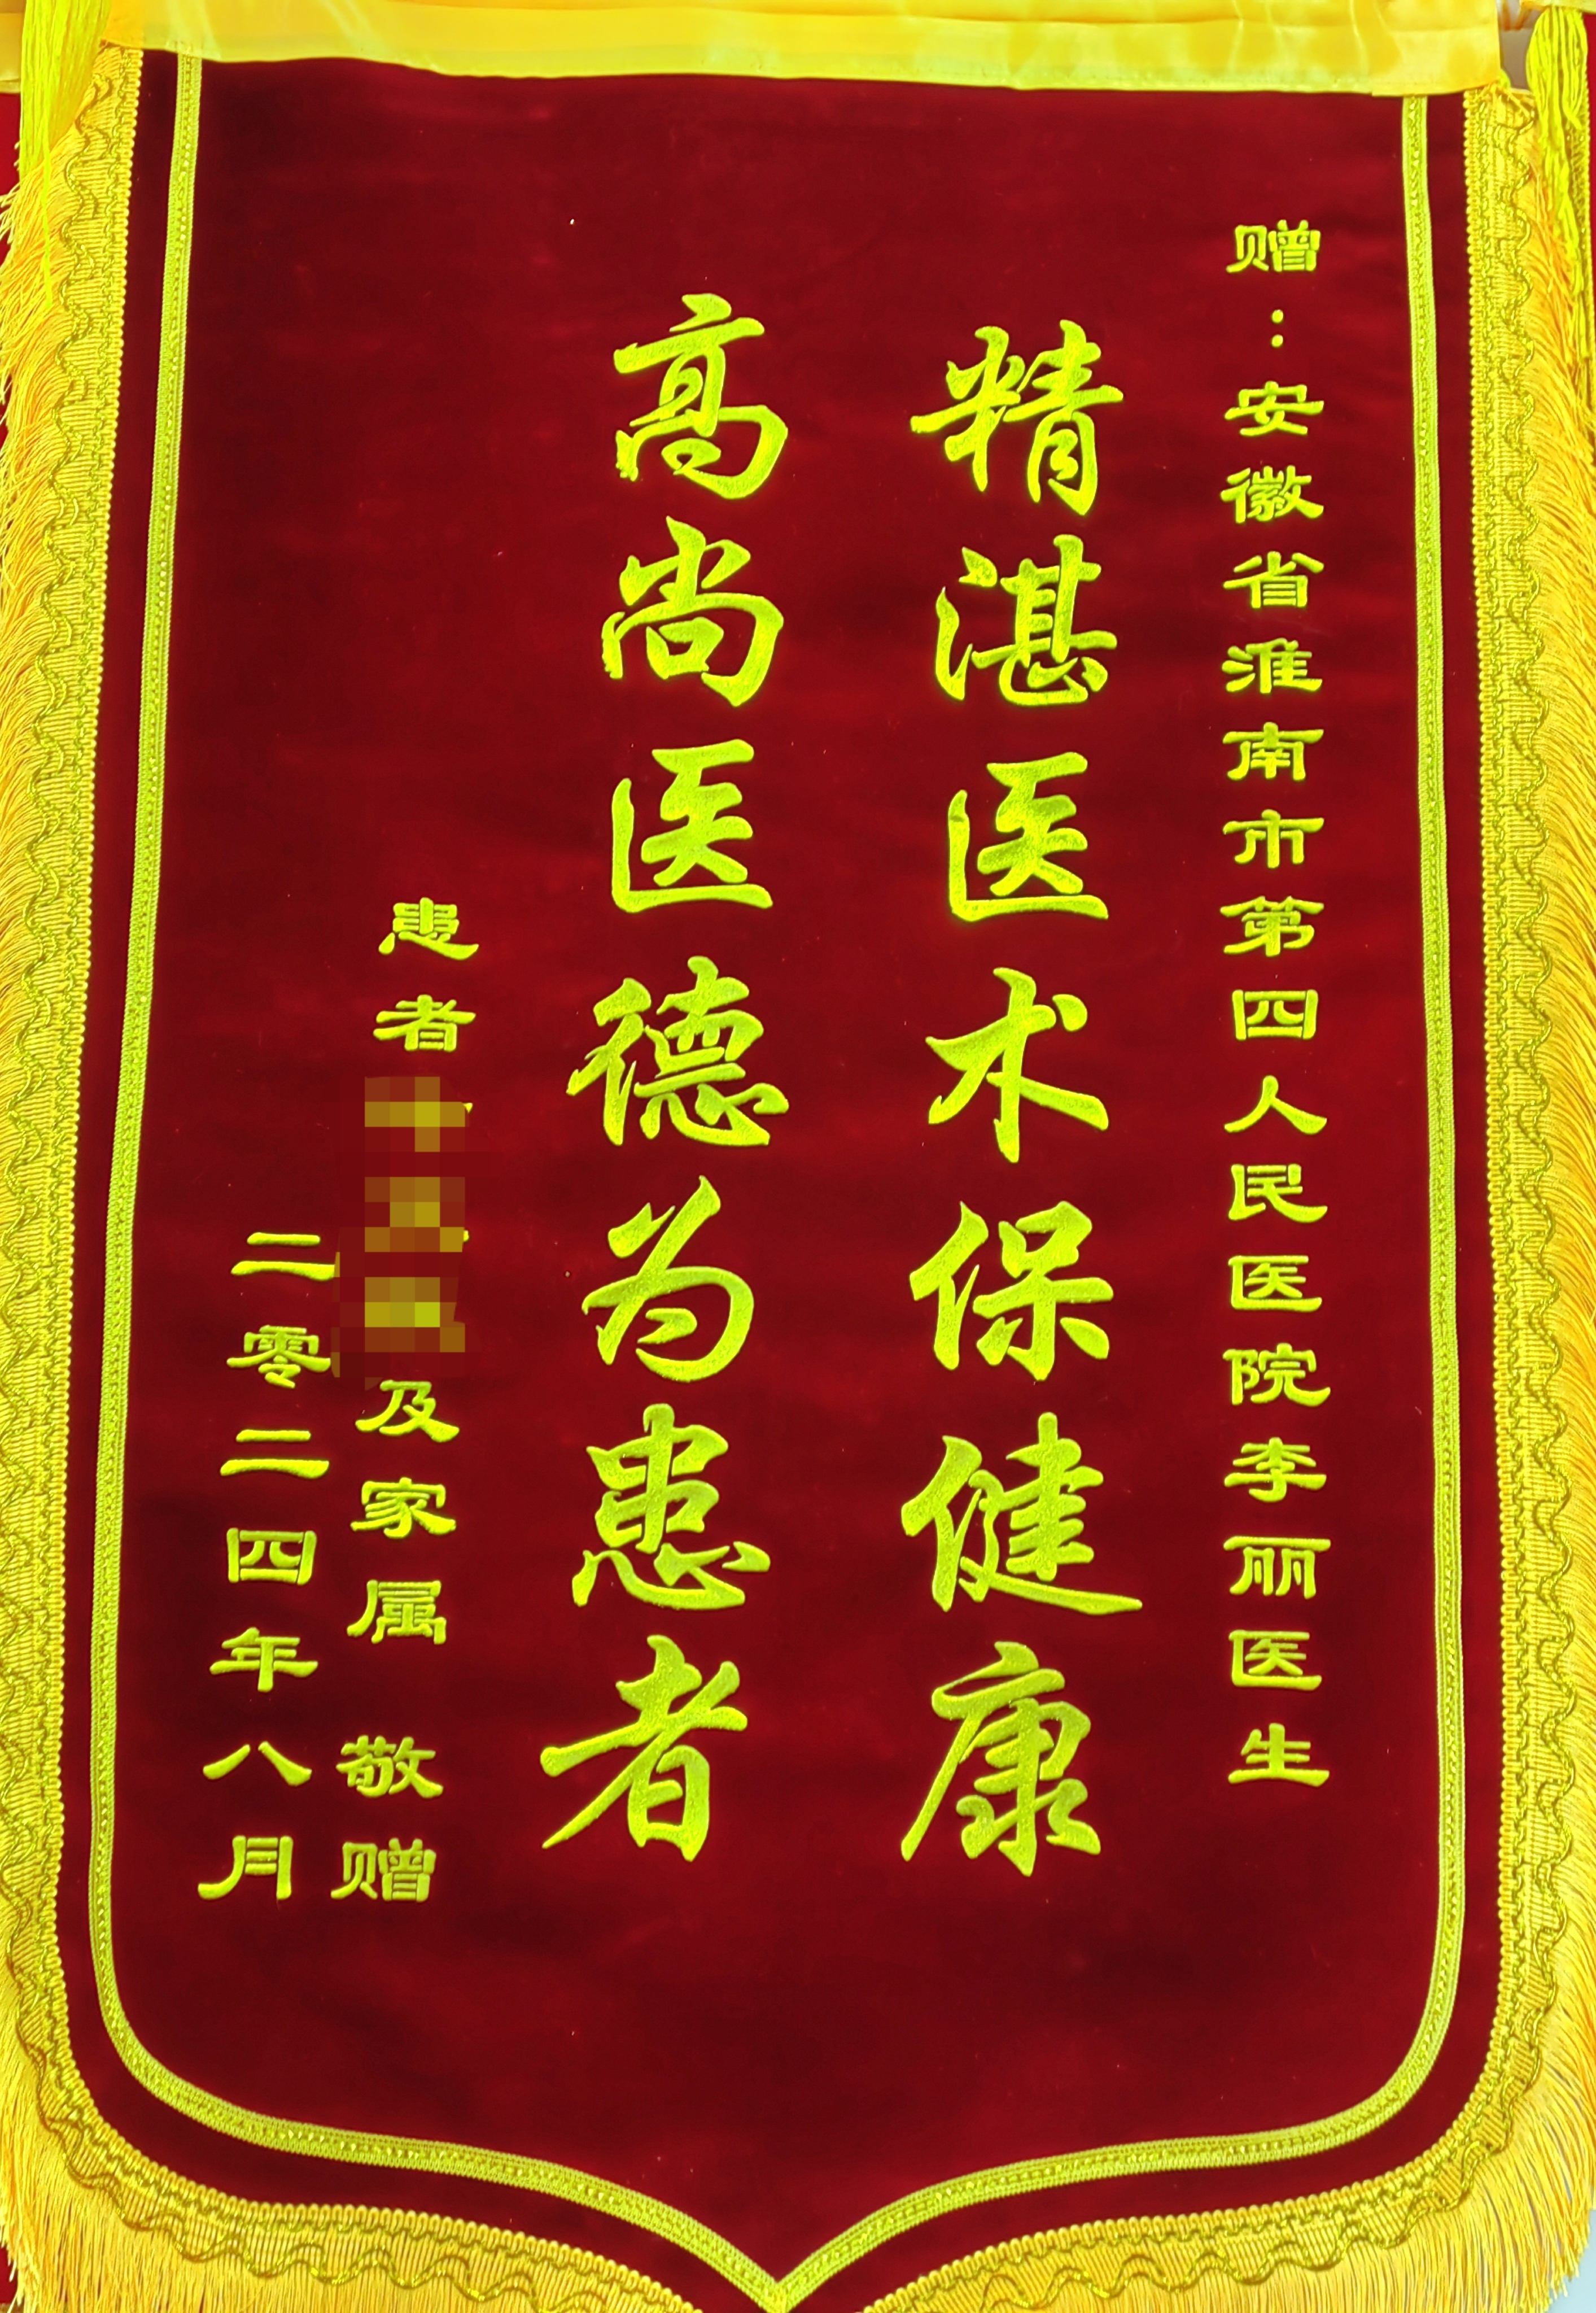 赠：安徽省淮南市第四人民医院李丽医生
精湛医术保健康
高尚医德为患者
患者
及家属 敬赠
二零二四年八月